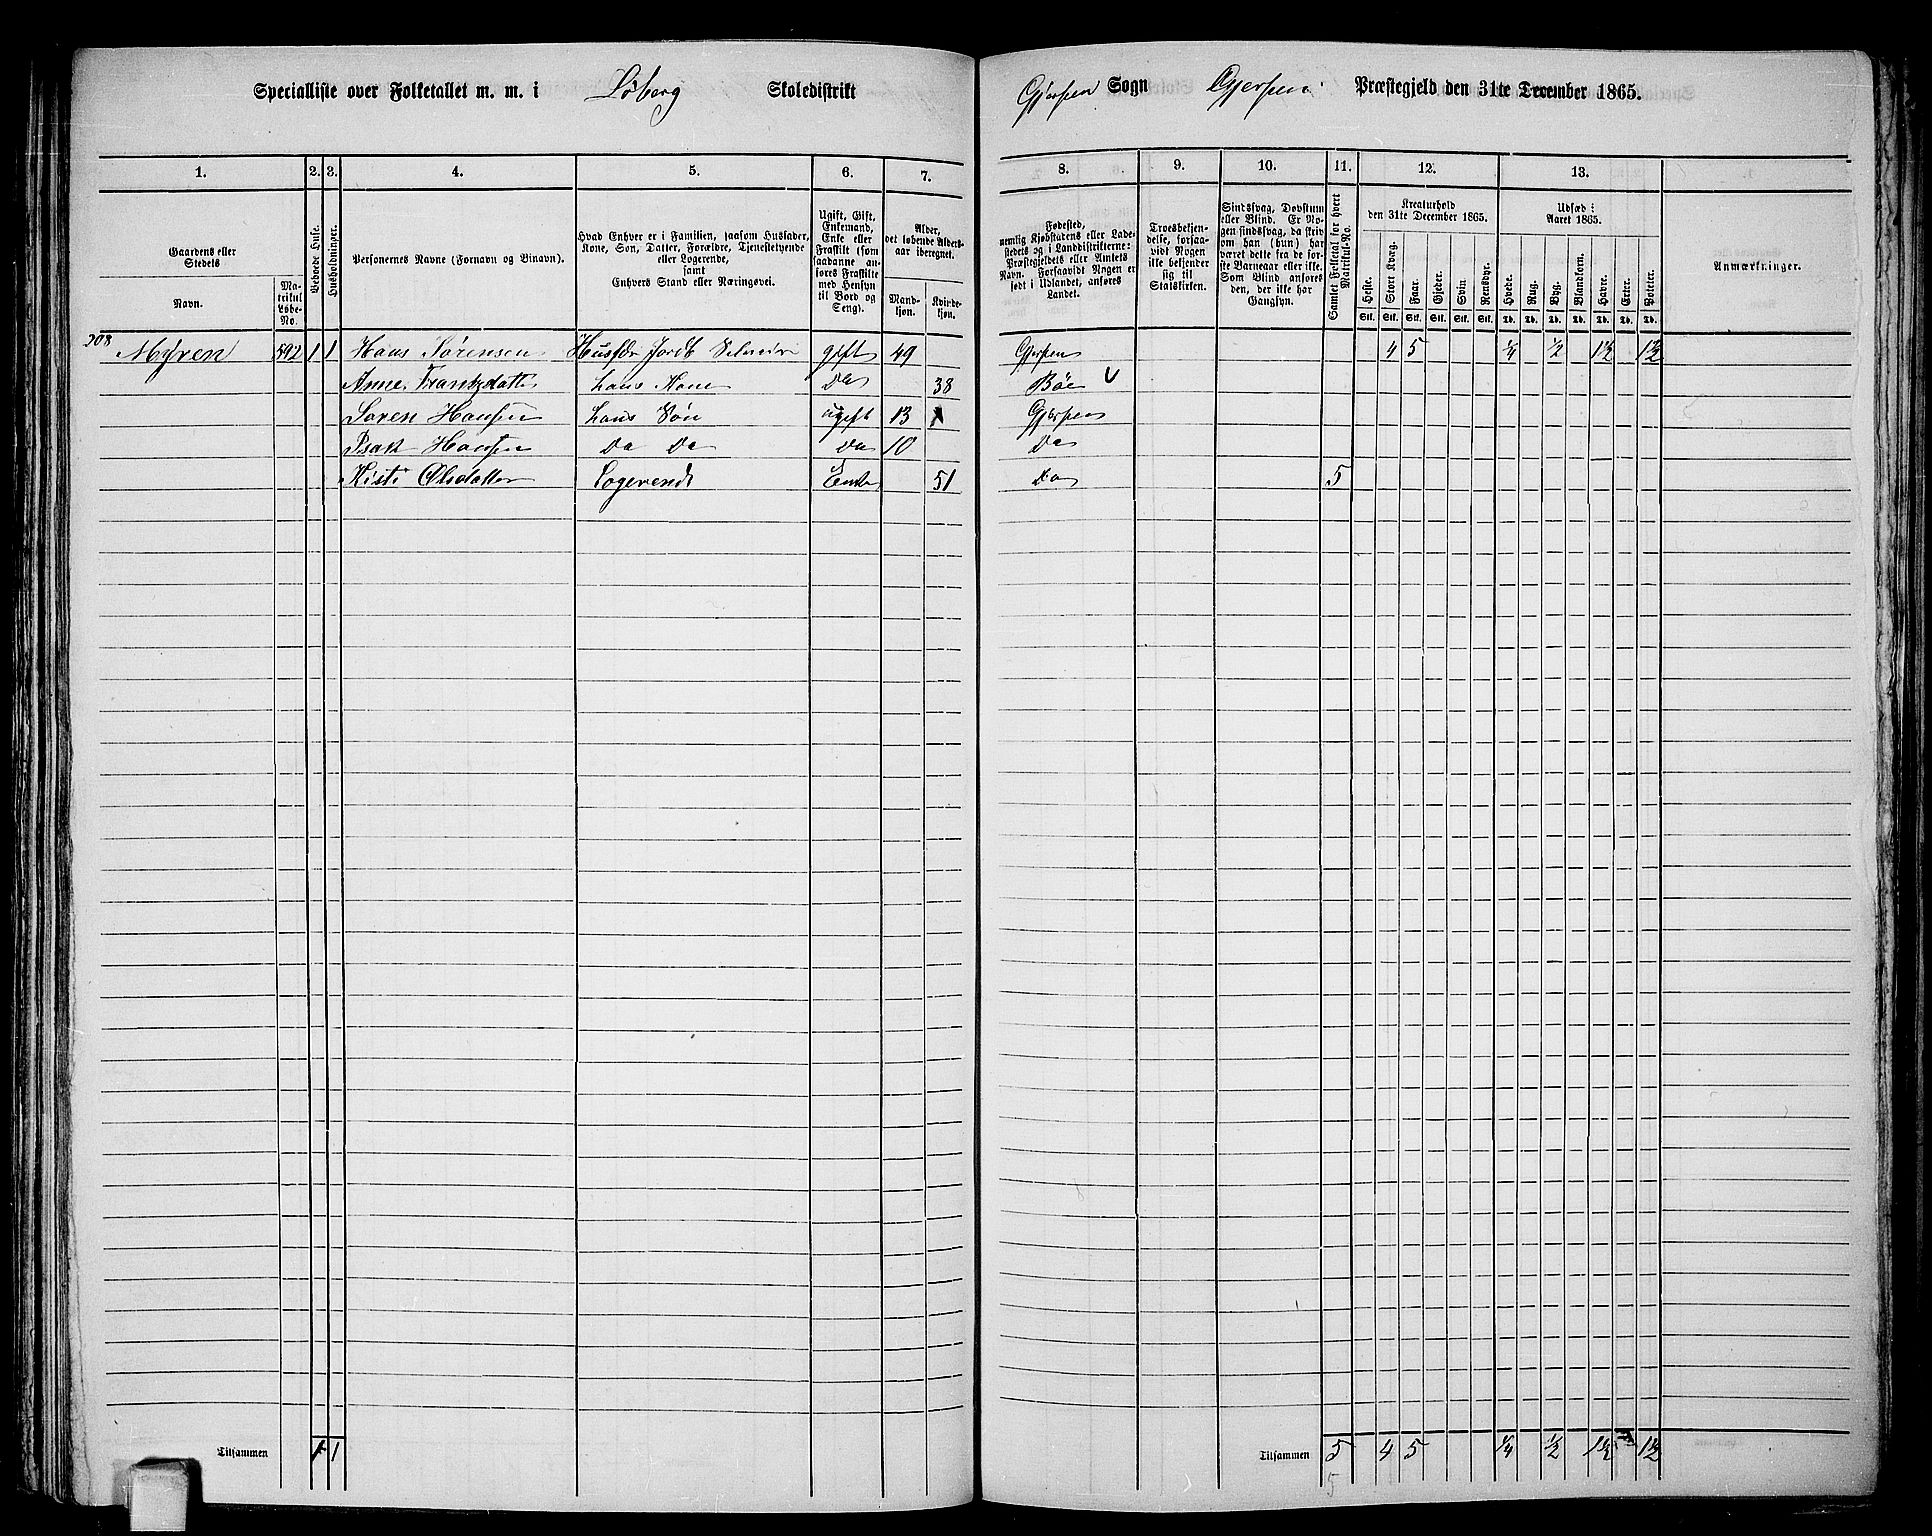 Specialliste over Folketallet m. m. i Løberg Skoledistrikt
Gjerpen Sogn Gjerpen Præstegjeld den 31te December 1865.
1. 2. 3. 4. 5. 6. 7.
8. 9. 10. 11. 12. 13.
Gaardens eller Stedets
Navn.
Matrikul Løbe-No.
Beboede Huse.
Husholdninger.
Personernes Navne (Fornavn og Binavn).
Hvad Enhver er i Familien, saasom Husfader, Kone, Søn, Datter, Forældre, Tjenestetyende eller Logerende,
samt
Enhvers Stand eller Næringsvei.
Ugift, Gift, Enkemand, Enke eller Fraskilt (som saadanne anføres Fraskilte med Hensyn til Bord og Seng).
Alder, det løbende Alders-aar iberegnet.
Mand-kjøn.
Kvinde-kjøn.
Fødested,
nemlig Kjøbstadens eller Ladestedets og i Landdistrikterne: Præstegjeldets eller Amtets Navn. Forsaavidt Nogen er født i Udlandet, anføres Landet.
Troesbekjendelse, forsaavidt Nogen ikke bekjender sig til Statskirken.
Sindssvag, Døvstum eller Blind. Er Nogen sindssvag, da skriv om han (hun) har været dette fra de første Barneaar eller ikke. Som Blind anføres den, der ikke har Gangsyn.
Samlet Folketal for hvert Matrikul-No.
Kreaturhold
den 31te December 1865.
Heste. Stort Kvæg. Faar. Gjeder. Svin. Rensdyr.
Stk. Stk. Stk. Stk. Stk. Stk.
Udsæd i
Aaret 1865.
Hvede. Rug. Byg. Blandkorn. Havre. Erter. Poteter.
Td. Td. Td. Td. Td. Td. Td.
Anmærkninger.
208
Myren 592 1 1 Hans Sørensen gift 49 Gjerpen 4 5 1/4 1/2 1 1/2 1 1/2
Anne Frantzdatter hans Kone Do 38 Bøe V
Søren Hansen hans Søn ugift 13 Gjerpen
Isak Hansen Do Do Do 10 Do
Kisti Olsdatter Logerende Enke 51 Do 5
Tilsammen 1 1
Tilsammen 5 4 5 1/4 1/2 1 1/2 1 1/2
5